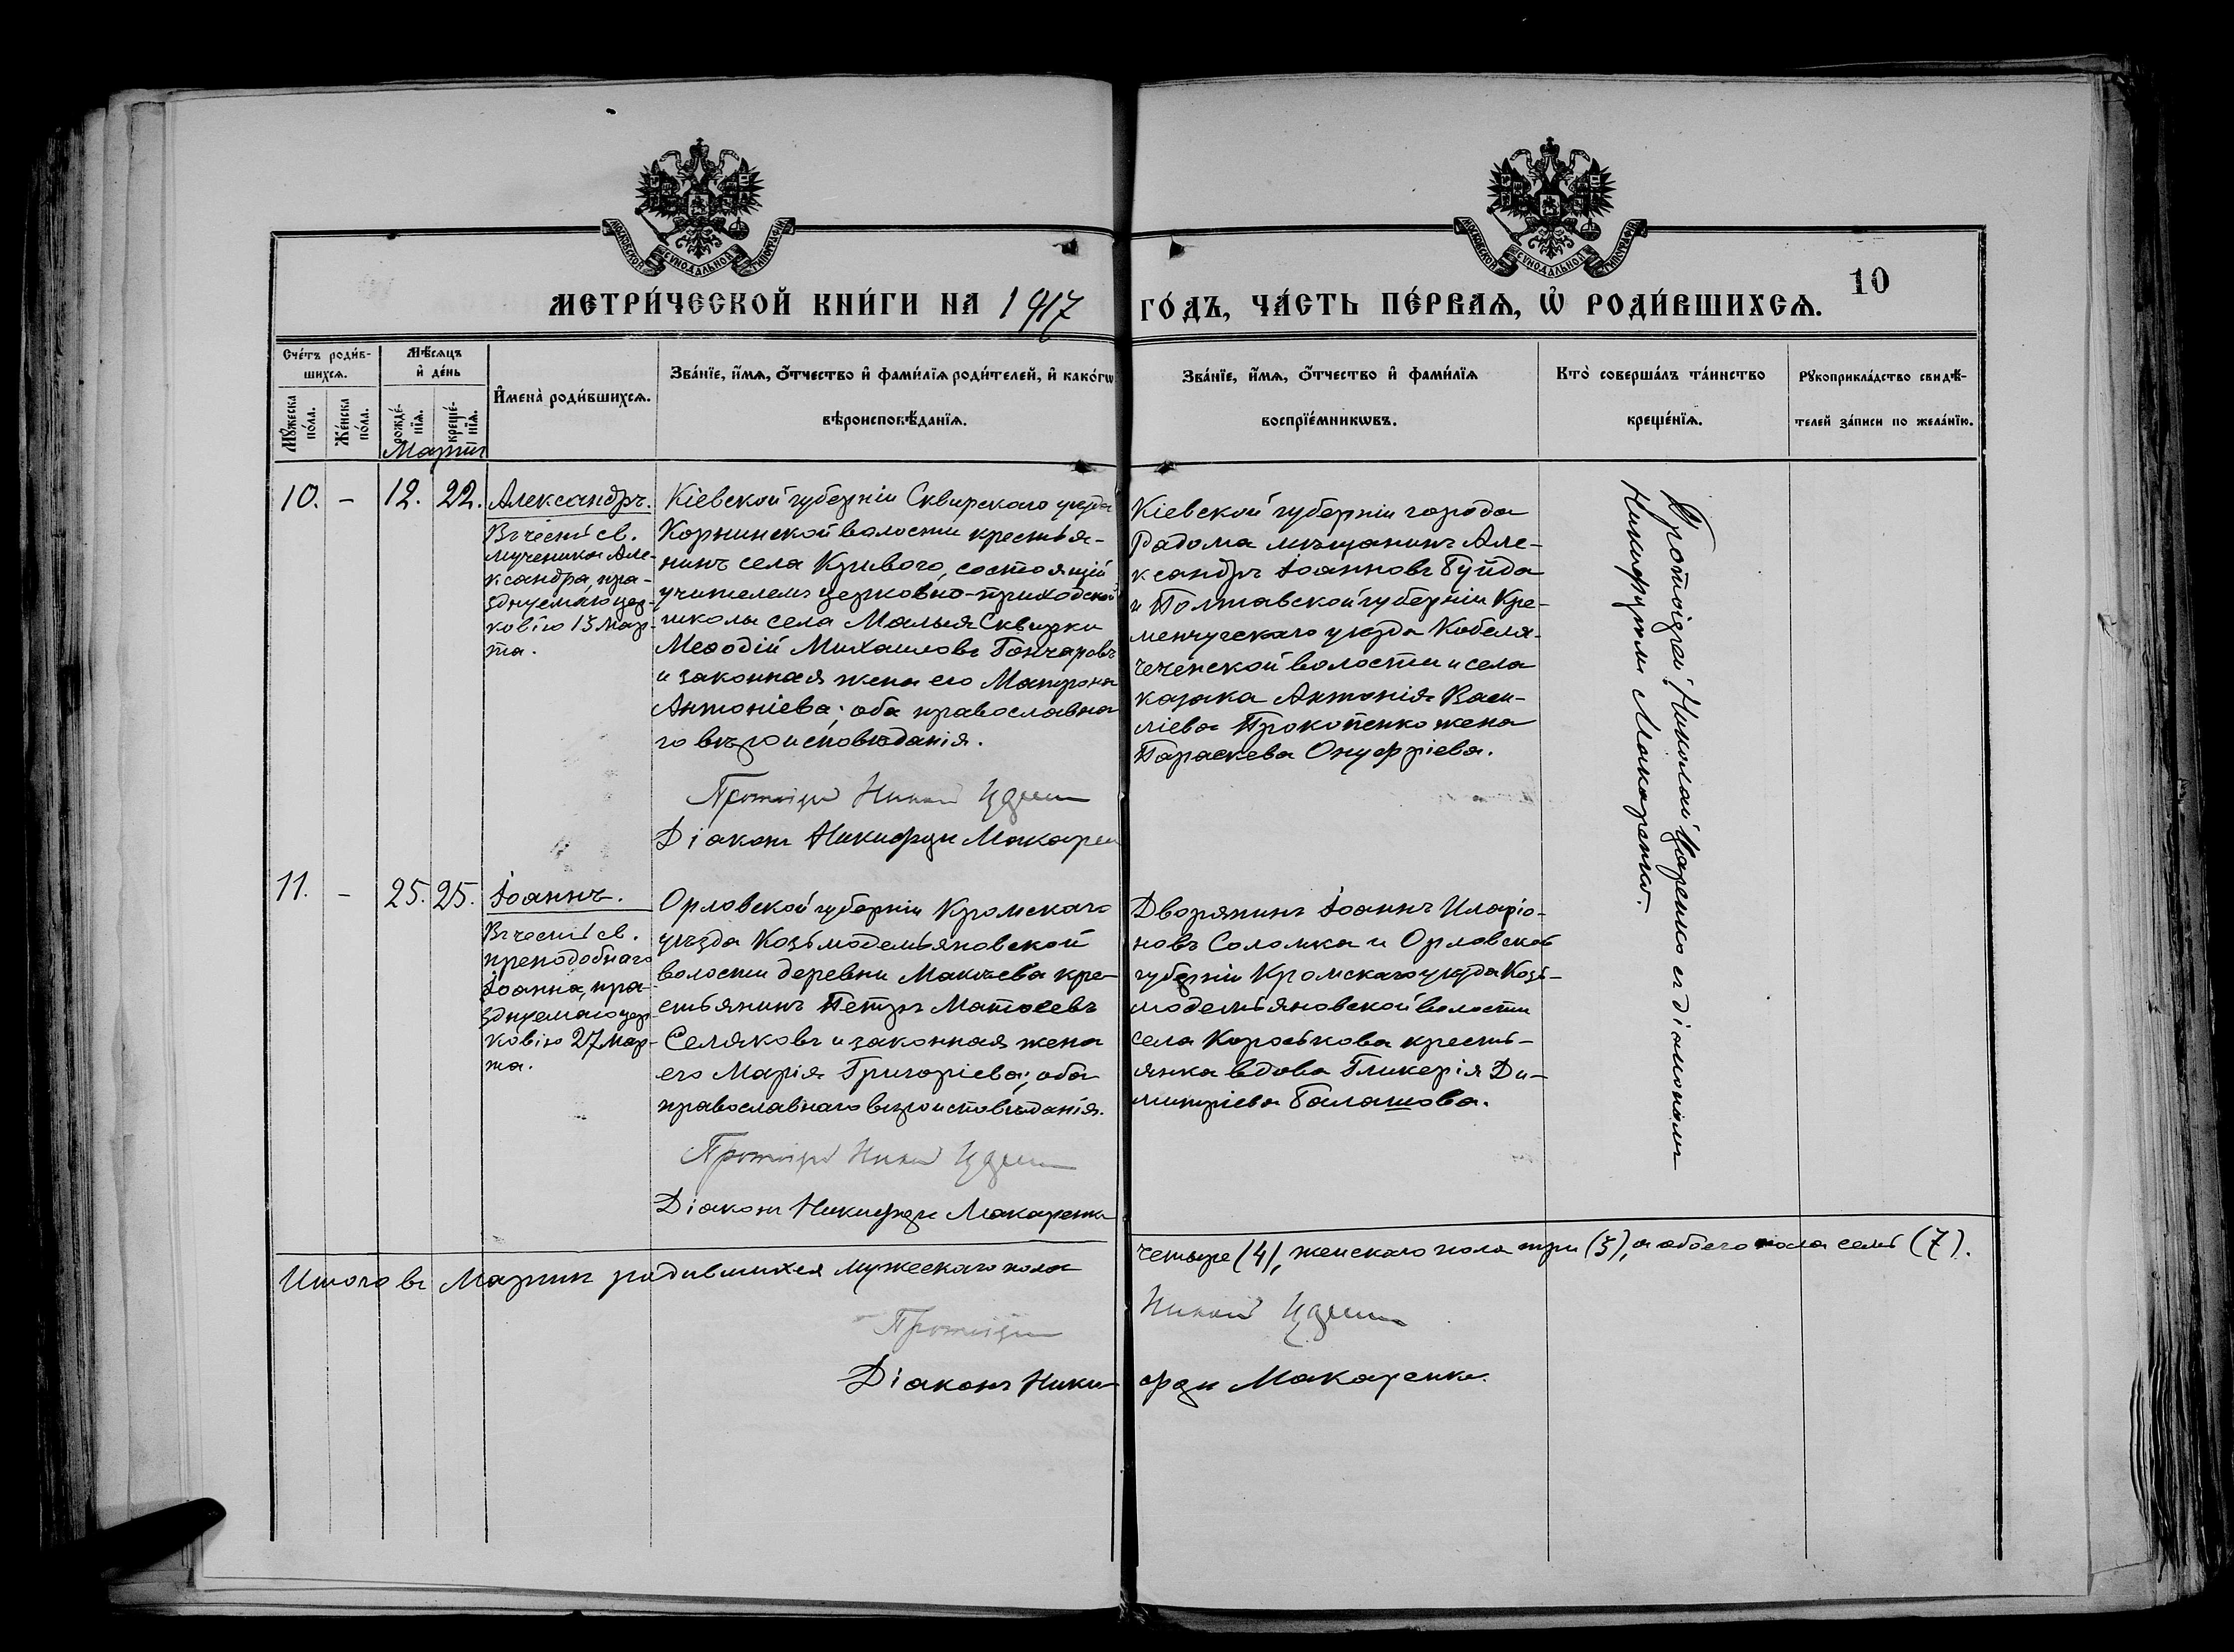 МОСКОВСКОЙ СУНОДАЛЬНОЙ ТИПОГРАФІИ
МОСКОВСКОЙ СУНОДАЛЬНОЙ ТИПОГРАФІИ
10
МЕТРИ́ЧЕСКОЙ КНИ́ГИ НА 1917 ГО́ДЪ, ЧА́СТЬ ПЕ́РВАѦ, Ѽ РОДИ́ВШИХСѦ.
Сче́тъ роди́в-
шихсѧ.
Мꙋ́жеска по́ла.
Же́нска по́ла.
Мѣ́сѧцъ
и҆ де́нь
рожде́-
нїѧ.
креще́-
нїѧ.
Мартъ
И҆мена̀ роди́вшихсѧ.
Зва́нїе, и҆́мѧ, ѻ҆́тчество и҆ фами́лїѧ роди́телей, и҆ како́гѡ
вѣроисповѣ́данїѧ.
Зва́нїе, и҆́мѧ, ѻ҆́тчество и҆ фами́лїѧ
воспрїе́мникѡвъ.
Кто̀ соверша́лъ та́инство
креще́нїѧ.
Рꙋкоприкла́дство свидѣ́-
телей за́писи по жела́нїю.
10. - 12. 22. Александръ.
Въ честь св.
мученика Але-
ксандра, пра-
зднуемаго цер-
ковію 13 Мар-
та.
Кіевской губерніи Сквирскаго уѣзда
Корнинской волости крестья-
нинъ села Кривого, состоящій
учителемъ церковно-приходской
школы села Малыя Сквирки
Меѳодій Михаиловъ Гончаровъ
и законная жена его Матрона
Антоніева; оба православна
го вѣроисповѣданія.
Протоіерей Николай
Діаконъ Никифоръ Макарен
Кіевской губерніи города
Радома мѣщанинъ Але-
ксандръ Іоанновъ Буйда
и Полтавской губерніи Кре-
менчугскаго уѣзда Кобеля-
ченской волости и села
казака Антонія Васи-
ліева Прокопенко жена
Параскева Онуфріева.
Протоіерей Николай Царенко съ діакономъ
Никифоромъ Макаренко.
11. - 25. 25. Іоаннъ.
Въ честь св.
преподобнаго
Іоанна, пра-
зднуемаго цер-
ковію 27 Мар-
та.
Орловской губерніи Кромскаго
уѣзда Козьмодемьяновской
волости деревни Макѣева кре-
стьянинъ Петръ Матѳеевъ
Селяковъ и законная жена
его Марія Григоріева; оба
православнаго вѣроисповѣданія.
Протоіерей Николай
Діаконъ Никифоръ Макаренко
Дворянинъ Іоаннъ Иларіо-
новъ Соломка и Орловской
губерніи Кромскаго уѣзда Козь-
модемьяновской волости
села Короськова кресть-
янка вдова Гликерія Ди-
митріева Балашова.
Итого въ Мартѣ родившихся мужескаго пола четыре (4), женскаго пола три (3), а обоего пола семь (7).
Протоіерей Николай
Діаконъ Никифоръ Макаренко.